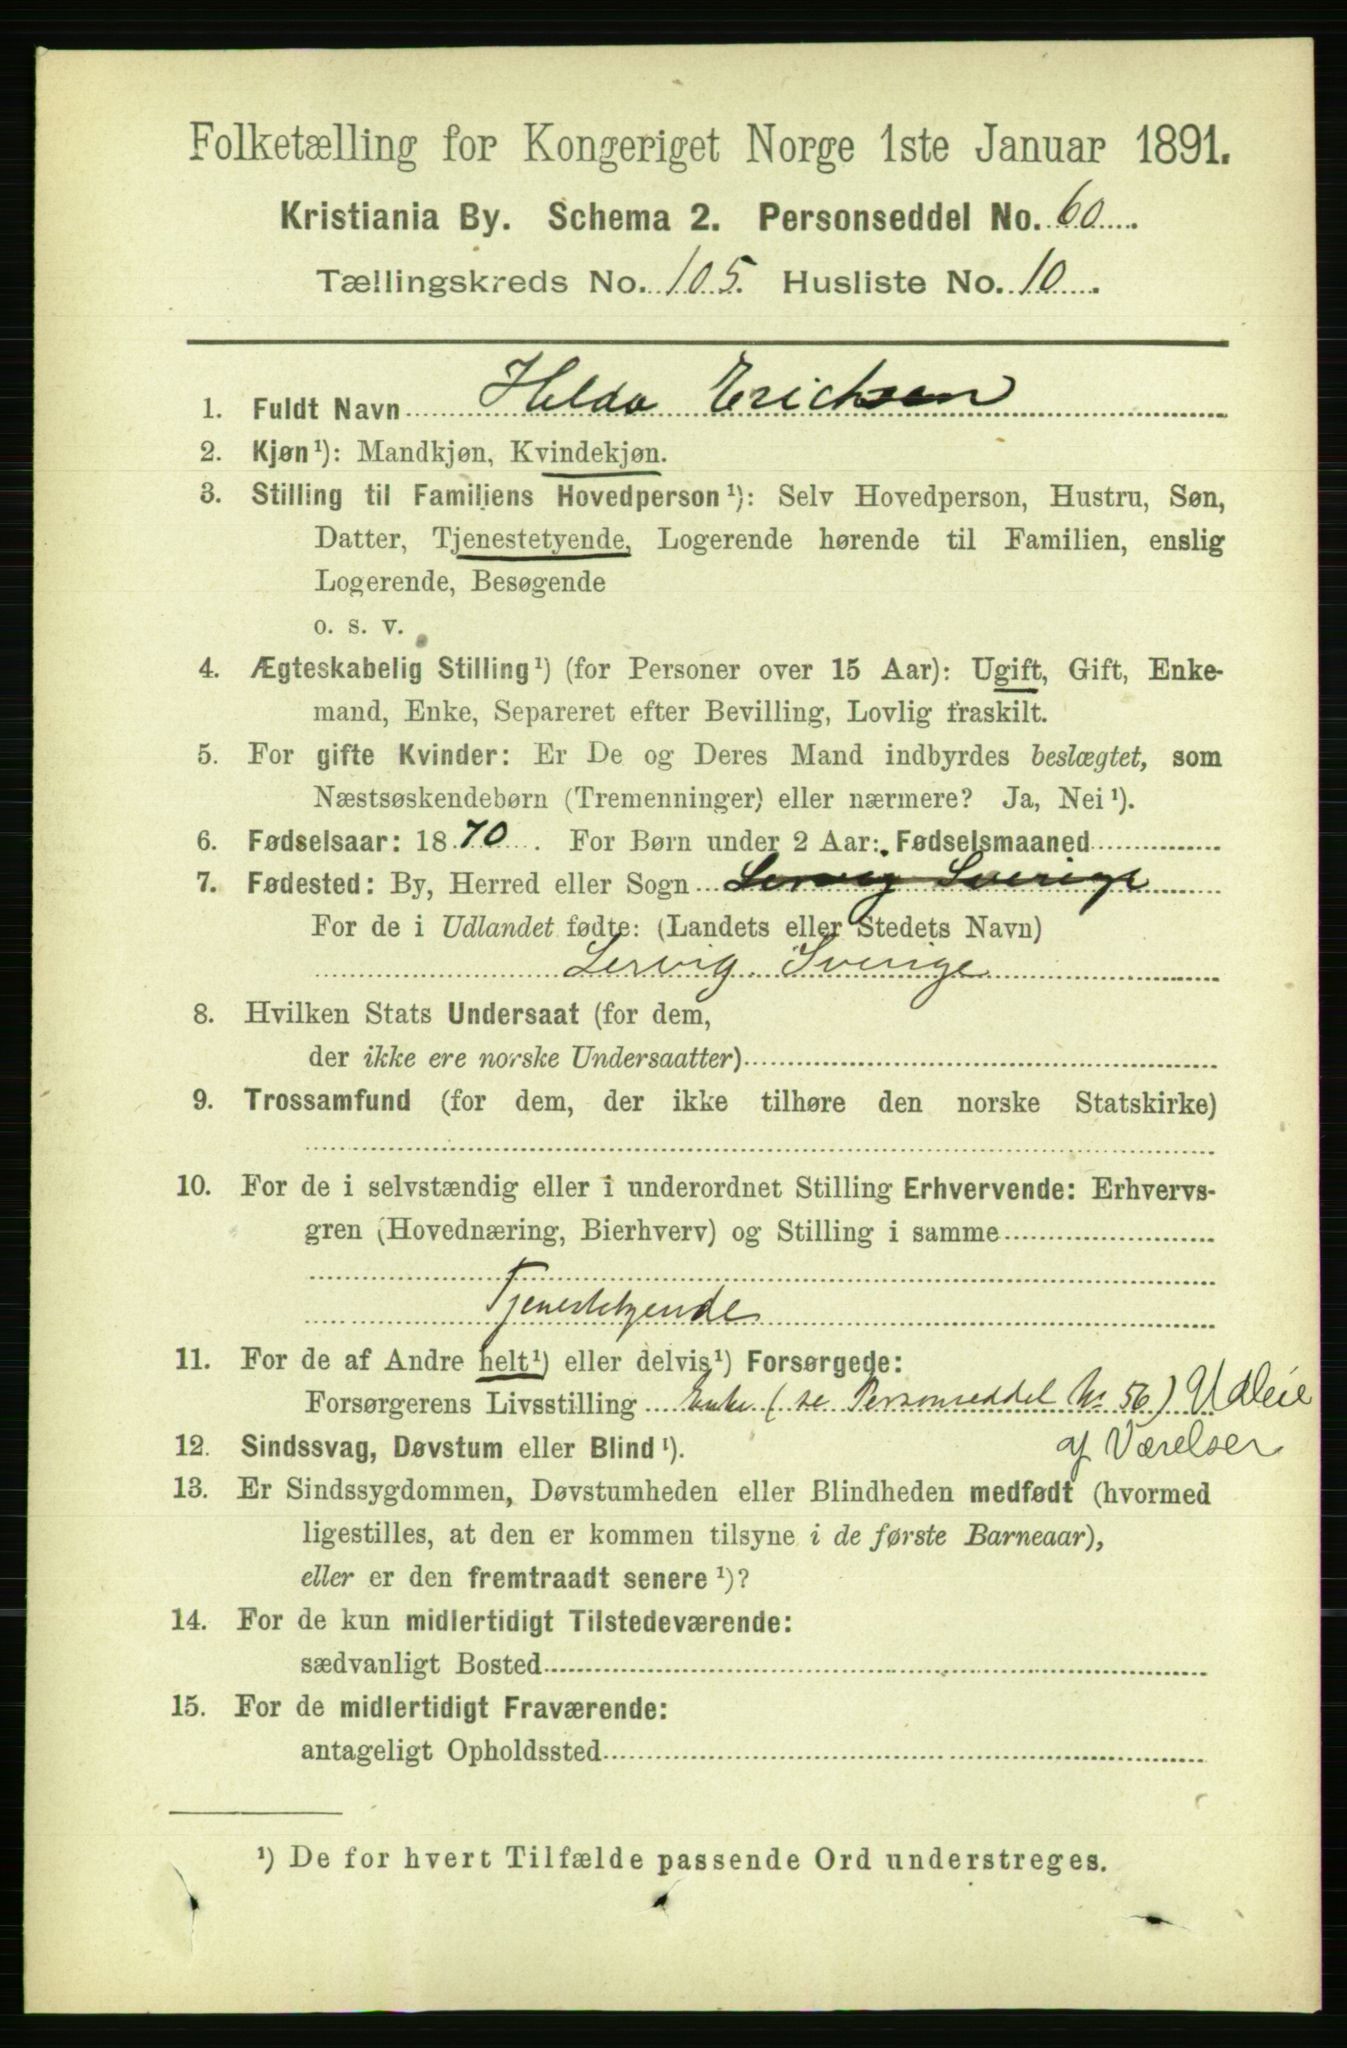 Folketælling for Kongeriget Norge 1ste Januar 1891.
Kristiania By. Schema 2. Personseddel No. 60
Tællingskreds No. 105. Husliste No. 10
1. Fuldt Navn Helda Erichsen
2. Kjøn¹): Mandkjøn, Kvindekjøn.
3. Stilling til Familiens Hovedperson¹): Selv Hovedperson, Hustru, Søn,
Datter, Tjenestetyende, Logerende hørende til Familien, enslig
Logerende, Besøgende
o. s. v.
4. Ægteskabelig Stilling¹) (for Personer over 15 Aar): Ugift, Gift, Enke-
mand, Enke, Separeret efter Bevilling, Lovlig fraskilt.
5. For gifte Kvinder: Er De og Deres Mand indbyrdes beslægtet, som
Næstsøskendebørn (Tremenninger) eller nærmere? Ja, Nei¹).
6. Fødselsaar: 1870. For Børn under 2 Aar: Fødselsmaaned
7. Fødested: By, Herred eller Sogn Lervig Sverige
For de i Udlandet fødte: (Landets eller Stedets Navn)
Lervig Sverige
8. Hvilken Stats Undersaat (for dem,
der ikke ere norske Undersaatter)
9. Trossamfund (for dem, der ikke tilhøre den norske Statskirke)
10. For de i selvstændig eller i underordnet Stilling Erhvervende: Erhvervs-
gren (Hovednæring, Bierhverv) og Stilling i samme
Tjenestetyende
11. For de af Andre helt¹) eller delvis¹) Forsørgede:
Forsørgerens Livsstilling Enke (se Personseddel No 56) Udleie
af Værelser
12. Sindssvag, Døvstum eller Blind¹).
13. Er Sindssygdommen, Døvstumheden eller Blindheden medfødt (hvormed
ligestilles, at den er kommen tilsyne i de første Barneaar),
eller er den fremtraadt senere¹)?
14. For de kun midlertidigt Tilstedeværende:
sædvanligt Bosted
15. For de midlertidigt Fraværende:
antageligt Opholdssted
¹) De for hvert Tilfælde passende Ord understreges.